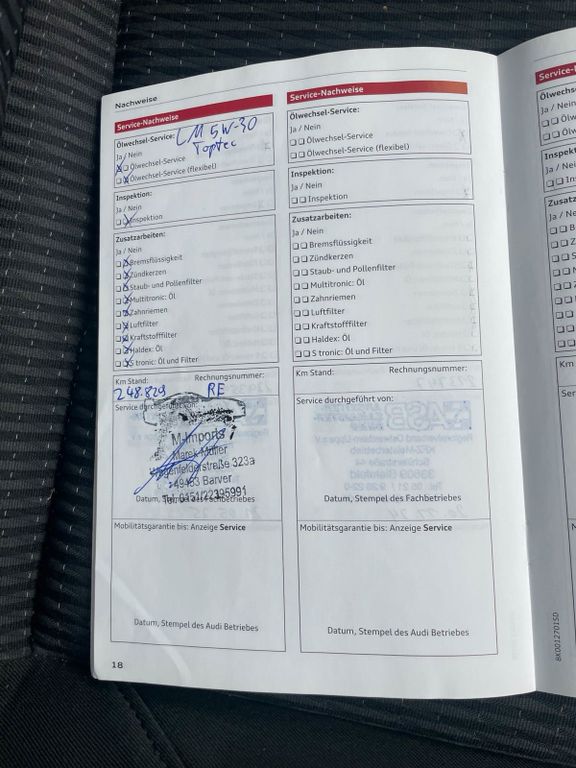 Nachweise
Service-Nachweise
Ölwechsel-Service: LM 5W-30
Toptec
Ja / Nein
Ölwechsel-Service
Ölwechsel-Service (flexibel)
Inspektion:
Ja / Nein
Inspektion
Zusatzarbeiten:
Ja / Nein
Bremsflüssigkeit
Zündkerzen
Staub- und Pollenfilter
Multitronic: Öl
Zahnriemen
Luftfilter
Kraftstofffilter
Haldex: Öl
S tronic: Öl und Filter
Km Stand: Rechnungsnummer:
248.829 RE
Service durchgeführt von:
M-Imports
Marek Müller
49453 Barver
Datum, Stempel des Fachbetriebes
Mobilitätsgarantie bis: Anzeige Service
Datum, Stempel des Audi Betriebes
18
Service-Nachweise
Ölwechsel-Service:
Ja / Nein
Ölwechsel-Service
Ölwechsel-Service (flexibel)
Inspektion:
Ja / Nein
Inspektion
Zusatzarbeiten:
Ja / Nein
Bremsflüssigkeit
Zündkerzen
Staub- und Pollenfilter
Multitronic: Öl
Zahnriemen
Luftfilter
Kraftstofffilter
Haldex: Öl
S tronic: Öl und Filter
Km Stand: Rechnungsnummer:
Service durchgeführt von:
Datum, Stempel des Fachbetriebes
Mobilitätsgarantie bis: Anzeige Service
Datum, Stempel des Audi Betriebes
Ja / Nein
Ja / Nein
Ja / Nein